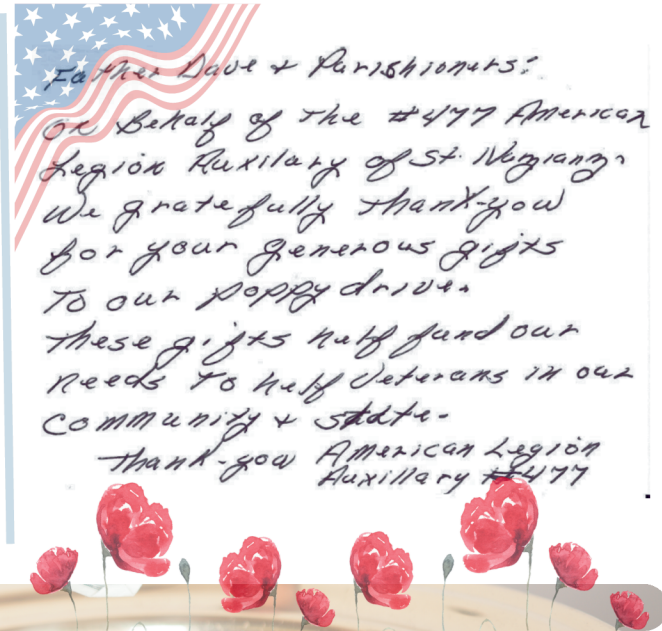 Father Dave & Parishioners:
On Behalf of The #477 American
Legion Auxilary of St. Nazianz.
We gratefully thank-you
for your generous gifts
To our poppy drive.
These gifts help fund our
needs To help Veterans in our
community & state.
Thank-you American Legion
Auxillary #477